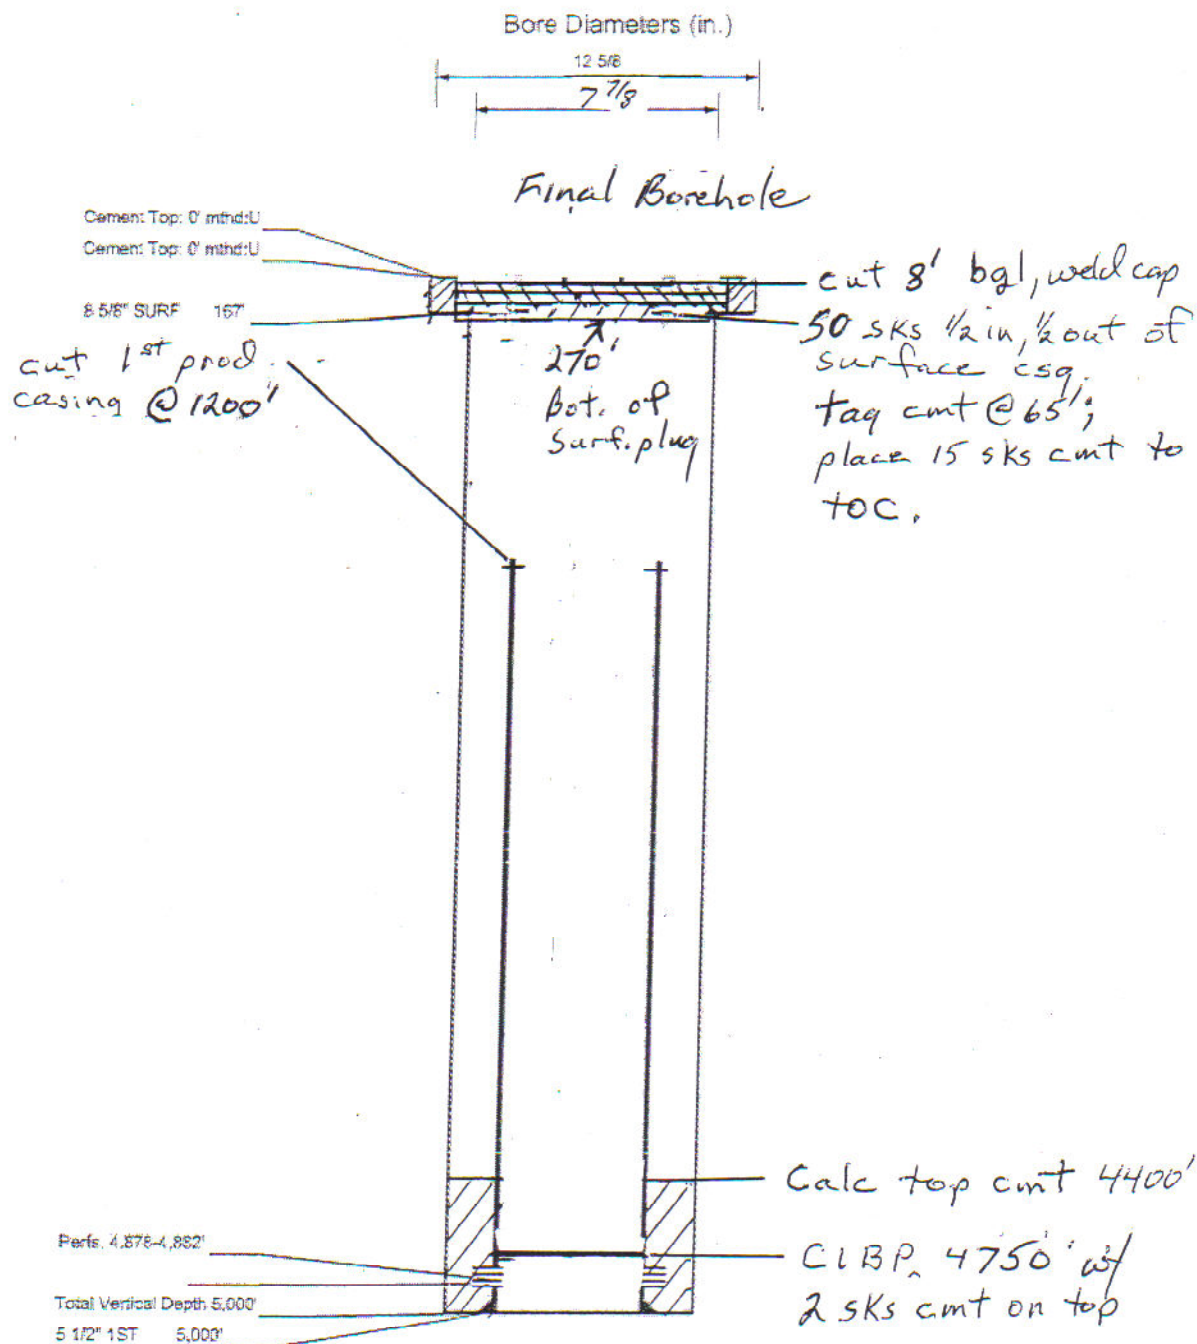 Bore Diameters (in.)
12 5/8
7 7/8
Final Borehole
Cement Top: 0' mthd:U
Cement Top: 0' mthd:U
8 5/8" SURF 167'
cut 1st prod.
casing @ 1200'
270'
Bot. of
Surf. plug
cut 8' bgl, weld cap
50 sks 1/2 in, 1/2 out of
surface csg.
tag cmt @ 65';
place 15 sks cmt to
TOC.
Calc top cmt 4400'
CIBP 4750' w/
2 sks cmt on top
Perfs. 4,878-4,882'
Total Vertical Depth 5,000'
5 1/2" 1ST 5,000'